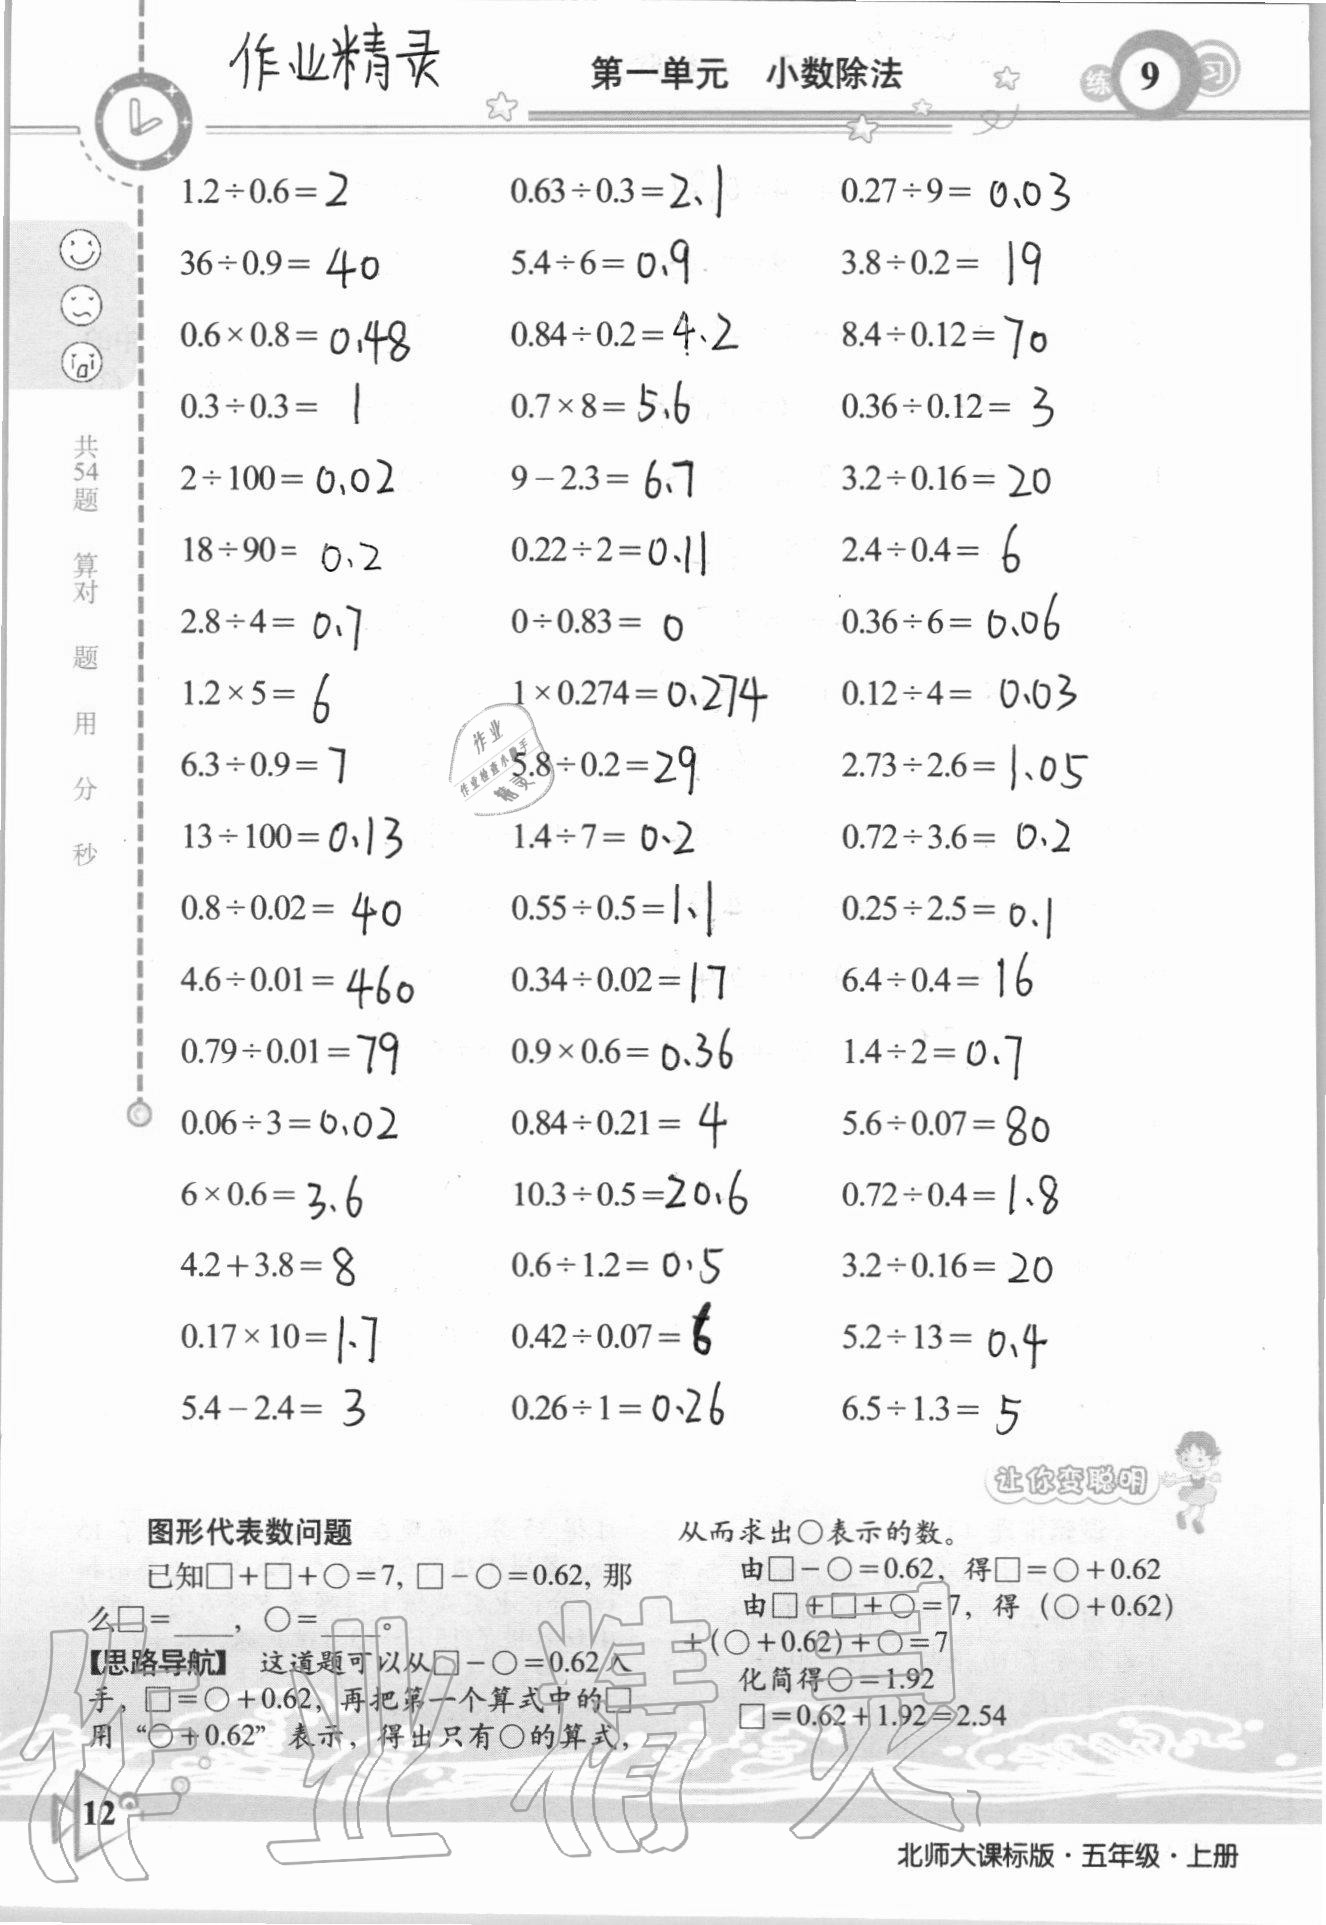 作业精灵
第一单元 小数除法
练 9 习
1.2÷0.6=2 0.63÷0.3=2.1 0.27÷9=0.03
36÷0.9=40 5.4÷6=0.9 3.8÷0.2=19
0.6×0.8=0.48 0.84÷0.2=4.2 8.4÷0.12=70
0.3÷0.3=1 0.7×8=5.6 0.36÷0.12=3
2÷100=0.02 9-2.3=6.7 3.2÷0.16=20
18÷90=0.2 0.22÷2=0.11 2.4÷0.4=6
2.8÷4=0.7 0÷0.83=0 0.36÷6=0.06
1.2×5=6 1×0.274=0.274 0.12÷4=0.03
6.3÷0.9=7 5.8÷0.2=29 2.73÷2.6=1.05
13÷100=0.13 1.4÷7=0.2 0.72÷3.6=0.2
0.8÷0.02=40 0.55÷0.5=1.1 0.25÷2.5=0.1
4.6÷0.01=460 0.34÷0.02=17 6.4÷0.4=16
0.79÷0.01=79 0.9×0.6=0.36 1.4÷2=0.7
0.06÷3=0.02 0.84÷0.21=4 5.6÷0.07=80
6×0.6=3.6 10.3÷0.5=20.6 0.72÷0.4=1.8
4.2+3.8=8 0.6÷1.2=0.5 3.2÷0.16=20
0.17×10=1.7 0.42÷0.07=6 5.2÷13=0.4
5.4-2.4=3 0.26÷1=0.26 6.5÷1.3=5
共54题 算对 题 用 分 秒
作业
作业检查小助手
精灵
让你变聪明
图形代表数问题
已知□+□+○=7, □-○=0.62, 那
么□=____, ○=____。
【思路导航】 这道题可以从□-○=0.62入
手, □=○+0.62, 再把第一个算式中的□
用“○+0.62”表示, 得出只有○的算式,
从而求出○表示的数。
由□-○=0.62, 得□=○+0.62
由□+□+○=7, 得(○+0.62)
+(○+0.62)+○=7
化简得○=1.92
□=0.62+1.92=2.54
作业精灵
12
北师大课标版·五年级·上册